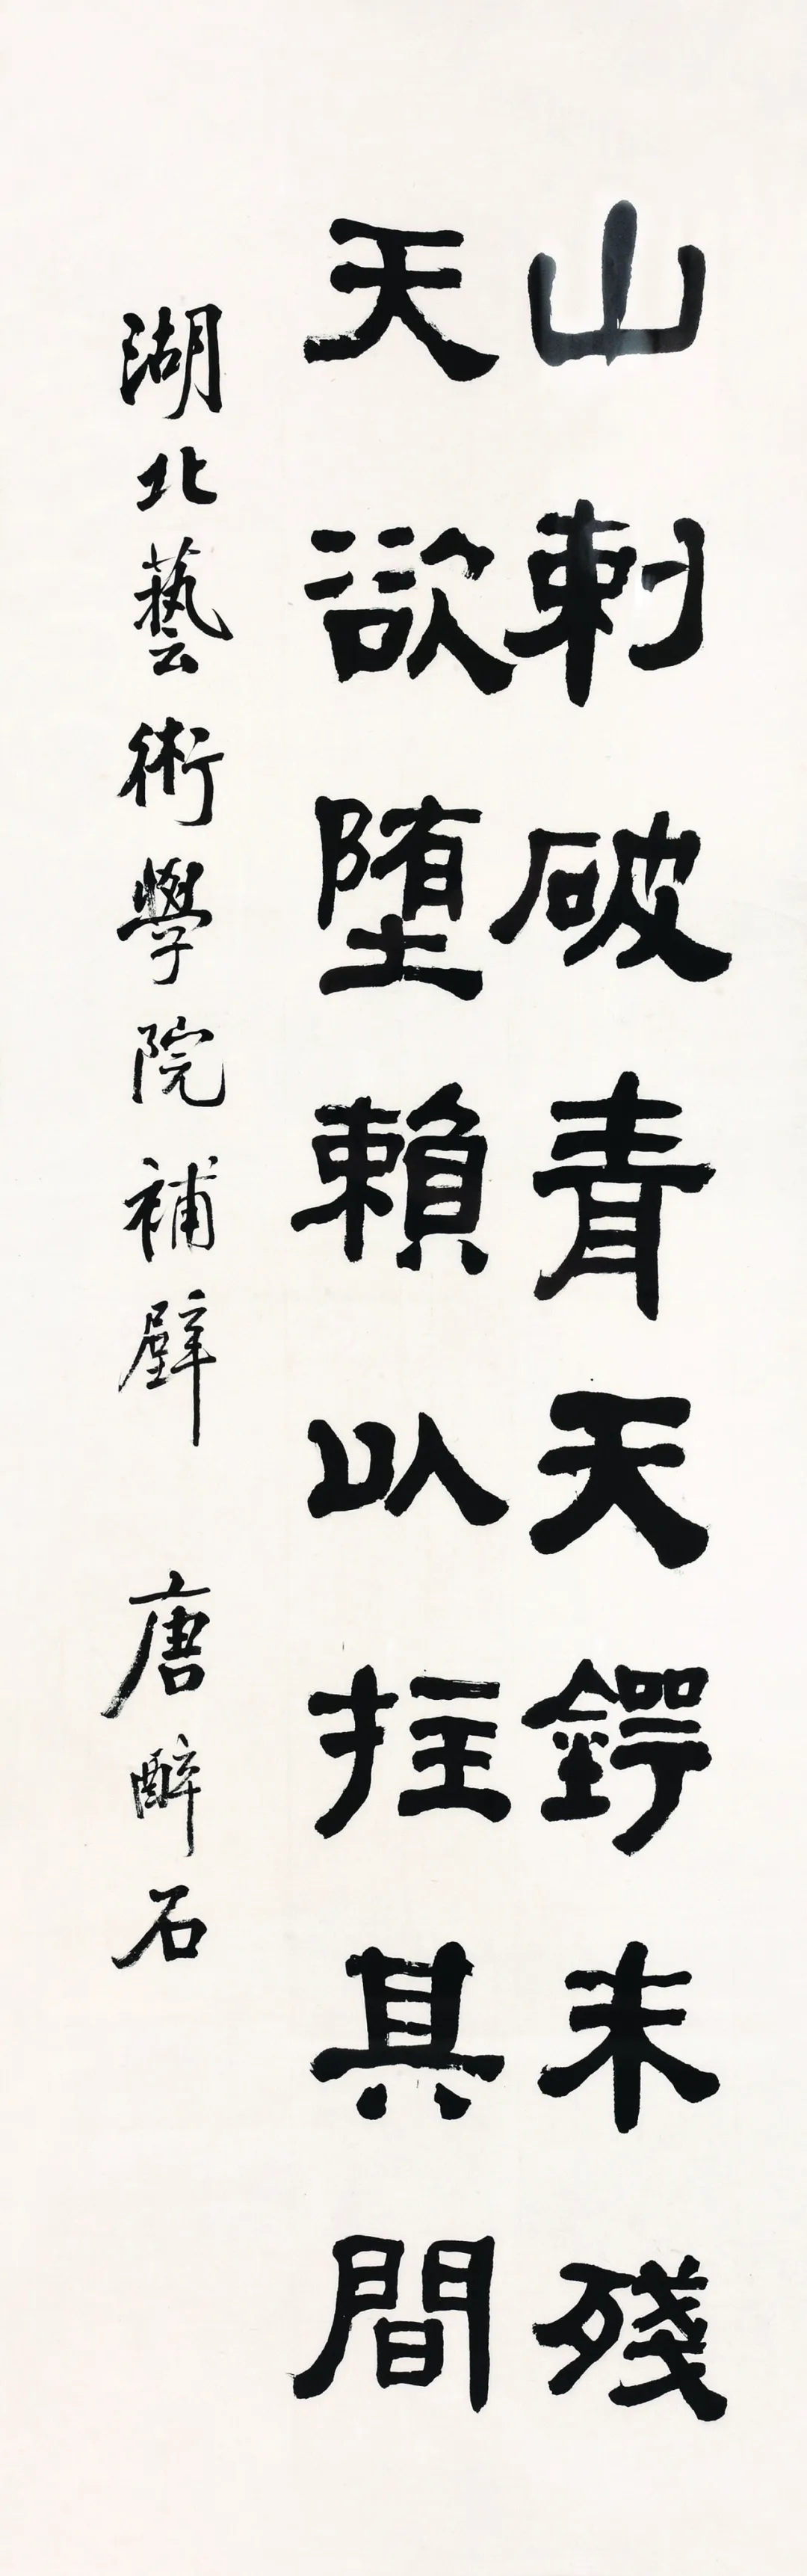 山刺破青天鍔未殘
天欲堕賴以拄其間
湖北藝術學院補壁 唐醉石